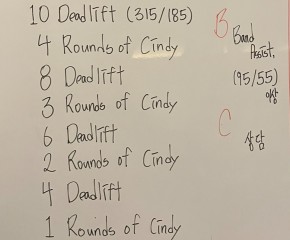 10 Deadlift (315/185)
4 Rounds of Cindy
8 Deadlift
3 Rounds of Cindy
6 Deadlift
2 Rounds of Cindy
4 Deadlift
1 Rounds of Cindy
B
Band
Assist,
(95/55)
이상
C
상담